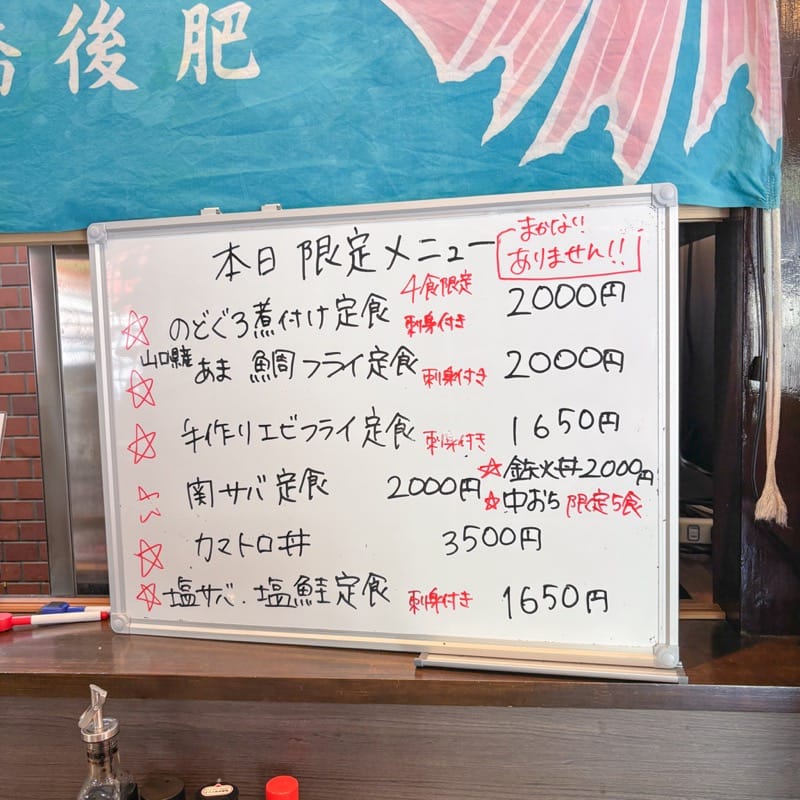 後肥
本日 限定メニュー
まかない
ありません!!
☆ のどぐろ煮付け定食 4食限定 刺身付き 2000円
☆ 山口県産 あま鯛フライ定食 刺身付き 2000円
☆ 手作りエビフライ定食 刺身付き 1650円
☆ 関サバ定食 2000円
☆ 鉄火丼2000円
☆ 中おち 限定5食
☆ カマトロ丼 3500円
☆ 塩サバ・塩鮭定食 刺身付き 1650円